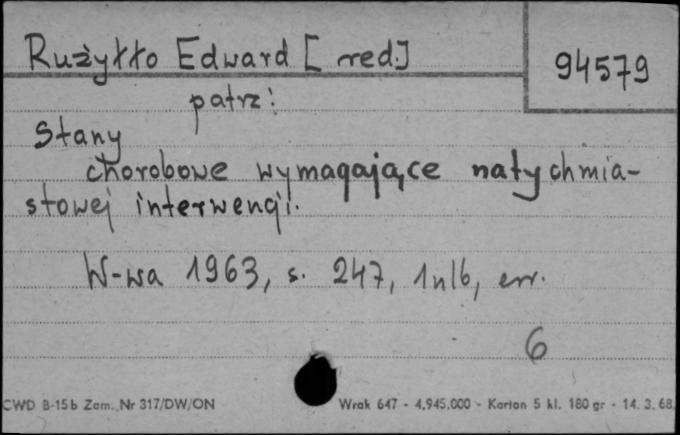 Rużyłło Edward [red.]
94579
patrz:
Stany
chorobowe wymagające natychmia-
stowej interwencji.
W-wa 1963, s. 247, 1nlb, err.
6
CWD B-15b Zam. Nr 317/DW/ON
Wrak 647 - 4.945.000 - Karton 5 kl. 180 gr - 14. 3. 68.